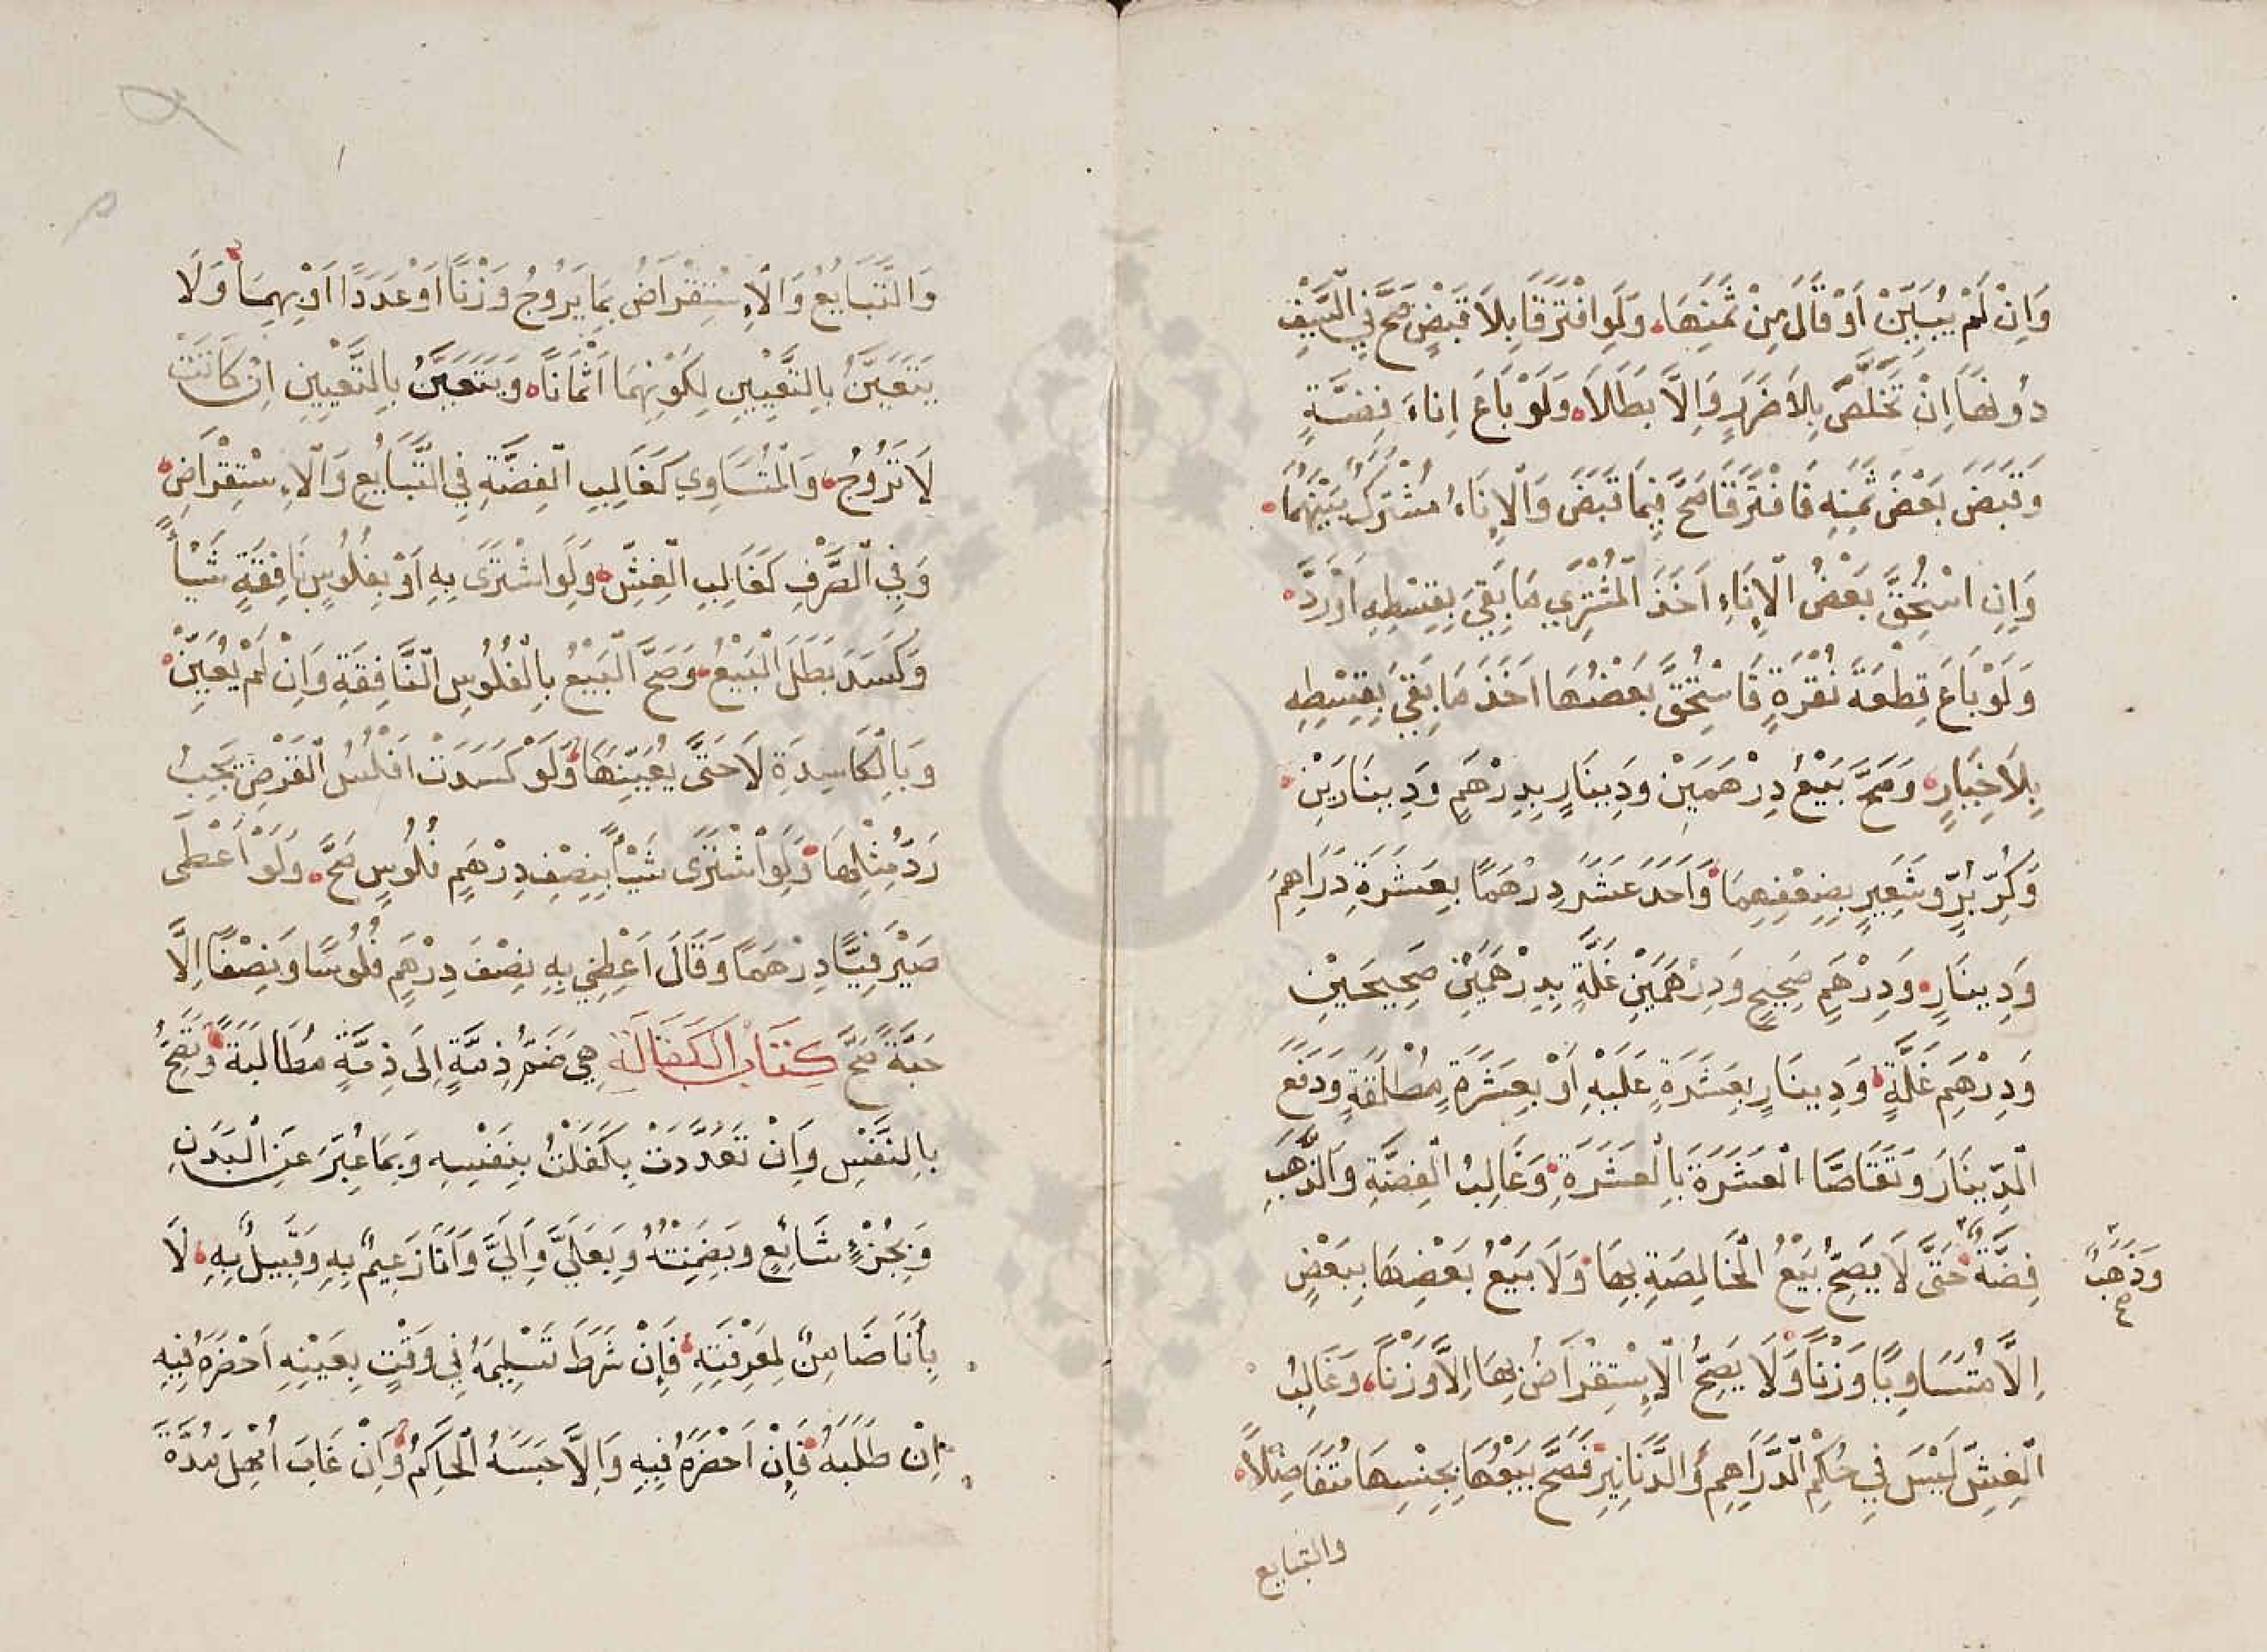 وَاِنْ لَمْ يُبَيِّنْ اَوْ قَالَ مِنْ ثَمَنِهَا وَلَوِ افْتَرَقَا بِلَا قَبْضٍ صَحَّ فِي السَّيْفِ
دُونَهَا اِنْ تَخَلَّصَ بِلَا ضَرَرٍ وَاِلَّا بَطَلَا وَلَوْ بَاعَ اِنَاءَ فِضَّةٍ
وَقَبَضَ بَعْضَ ثَمَنِهِ فَافْتَرَقَا صَحَّ فِيمَا قَبَضَ وَالْاِنَاءُ مُشْتَرَكٌ بَيْنَهُمَا
وَاِنِ اسْتُحِقَّ بَعْضُ الْاِنَاءِ اَخَذَ الْمُشْتَرِي مَا بَقِيَ بِقِسْطِهِ اَوْ رَدَّ
وَلَوْ بَاعَ قِطْعَةَ نُقْرَةٍ فَاسْتُحِقَّ بَعْضُهَا اَخَذَ مَا بَقِيَ بِقِسْطِهِ
بِلَا خِيَارٍ وَصَحَّ بَيْعُ دِرْهَمَيْنِ وَدِينَارٍ بِدِرْهَمٍ وَدِينَارَيْنِ
وَكُرِّ بُرٍّ وَشَعِيرٍ بِضِعْفِهِمَا وَاَحَدَ عَشَرَ دِرْهَمًا بِعَشَرَةِ دَرَاهِمَ
وَدِينَارٍ وَدِرْهَمٍ صَحِيحٍ وَدِرْهَمَيْنِ غَلَّةٍ بِدِرْهَمَيْنِ صَحِيحَيْنِ
وَدِرْهَمِ غَلَّةٍ وَدِينَارٍ بِعَشَرَةٍ عَلَيْهِ اَوْ بِعَشَرَةٍ مُطْلَقَةٍ وَدَفَعَ
الدِّينَارَ وَتَقَاصَّا الْعَشَرَةَ بِالْعَشَرَةِ وَغَالِبُ الْفِضَّةِ وَالذَّهَبِ
فِضَّةٌ حَتَّى لَا يَصِحُّ بَيْعُ الْخَالِصَةِ بِهَا وَلَا بَيْعُ بَعْضِهَا بِبَعْضٍ
وَذَهَبٌ صح
اِلَّا مُتَسَاوِيًا وَزْنًا وَلَا يَصِحُّ الْاِسْتِقْرَاضُ بِهَا اِلَّا وَزْنًا وَغَالِبُ
الْغِشِّ لَيْسَ فِي حُكْمِ الدَّرَاهِمِ وَالدَّنَانِيرِ فَصَحَّ بَيْعُهَا بِجِنْسِهَا مُتَفَاضِلًا
والتبايع
وَالتَّبَايُعُ وَالْاِسْتِقْرَاضُ بِمَا يَرُوجُ وَزْنًا اَوْ عَدَدًا اَوْ بِهِمَا وَلَا
يَتَعَيَّنُ بِالتَّعْيِينِ لِكَوْنِهِمَا اَثْمَانًا وَيَتَعَيَّنُ بِالتَّعْيِينِ اِنْ كَانَتْ
لَا تَرُوجُ وَالْمُتَسَاوِي كَغَالِبِ الْفِضَّةِ فِي التَّبَايُعِ وَالْاِسْتِقْرَاضِ
وَفِي الصَّرْفِ كَغَالِبِ الْغِشِّ وَلَوِ اشْتَرَى بِهِ اَوْ بِفُلُوسٍ نَافِقَةٍ شَيْأً
وَكَسَدَ بَطَلَ الْبَيْعُ وَصَحَّ الْبَيْعُ بِالْفُلُوسِ النَّافِقَةِ وَاِنْ لَمْ يُعَيِّنْ
وَبِالْكَاسِدَةِ لَا حَتَّى يُعَيِّنَهَا وَلَوْ كَسَدَتْ اَفْلُسُ الْقَرْضِ يَجِبُ
رَدُّ مِثْلِهَا وَلَوِ اشْتَرَى شَيْأً بِنِصْفِ دِرْهَمٍ فُلُوسٍ صَحَّ وَلَوْ اَعْطَى
صَيْرَفِيًّا دِرْهَمًا وَقَالَ اَعْطِنِي بِهِ نِصْفَ دِرْهَمٍ فُلُوسًا وَنِصْفًا اِلَّا
حَبَّةً صَحَّ كِتَابُ الْكَفَالَةِ هِيَ ضَمُّ ذِمَّةٍ اِلَى ذِمَّةٍ مُطَالَبَةً وَتَصِحُّ
بِالنَّفْسِ وَاِنْ تَعَدَّدَتْ بِكَفَلْتُ بِنَفْسِهِ وَبِمَا عُبِّرَ عَنِ الْبَدَنِ
وَبِجُزْءٍ شَائِعٍ وَبِضَمِنْتُهُ وَبِعَلَيَّ وَاِلَيَّ وَاَنَا زَعِيمٌ بِهِ وَقَبِيلٌ بِهِ لَا
بِأَنَا ضَامِنٌ لِمَعْرِفَتِهِ فَاِنْ شَرَطَ تَسْلِيمَهُ فِي وَقْتٍ بِعَيْنِهِ اَحْضَرَهُ فِيهِ
اِنْ طَلَبَهُ فَاِنْ اَحْضَرَهُ فِيهِ وَاِلَّا حَبَسَهُ الْحَاكِمُ وَاِنْ غَابَ اُمْهِلَ مُدَّةَ